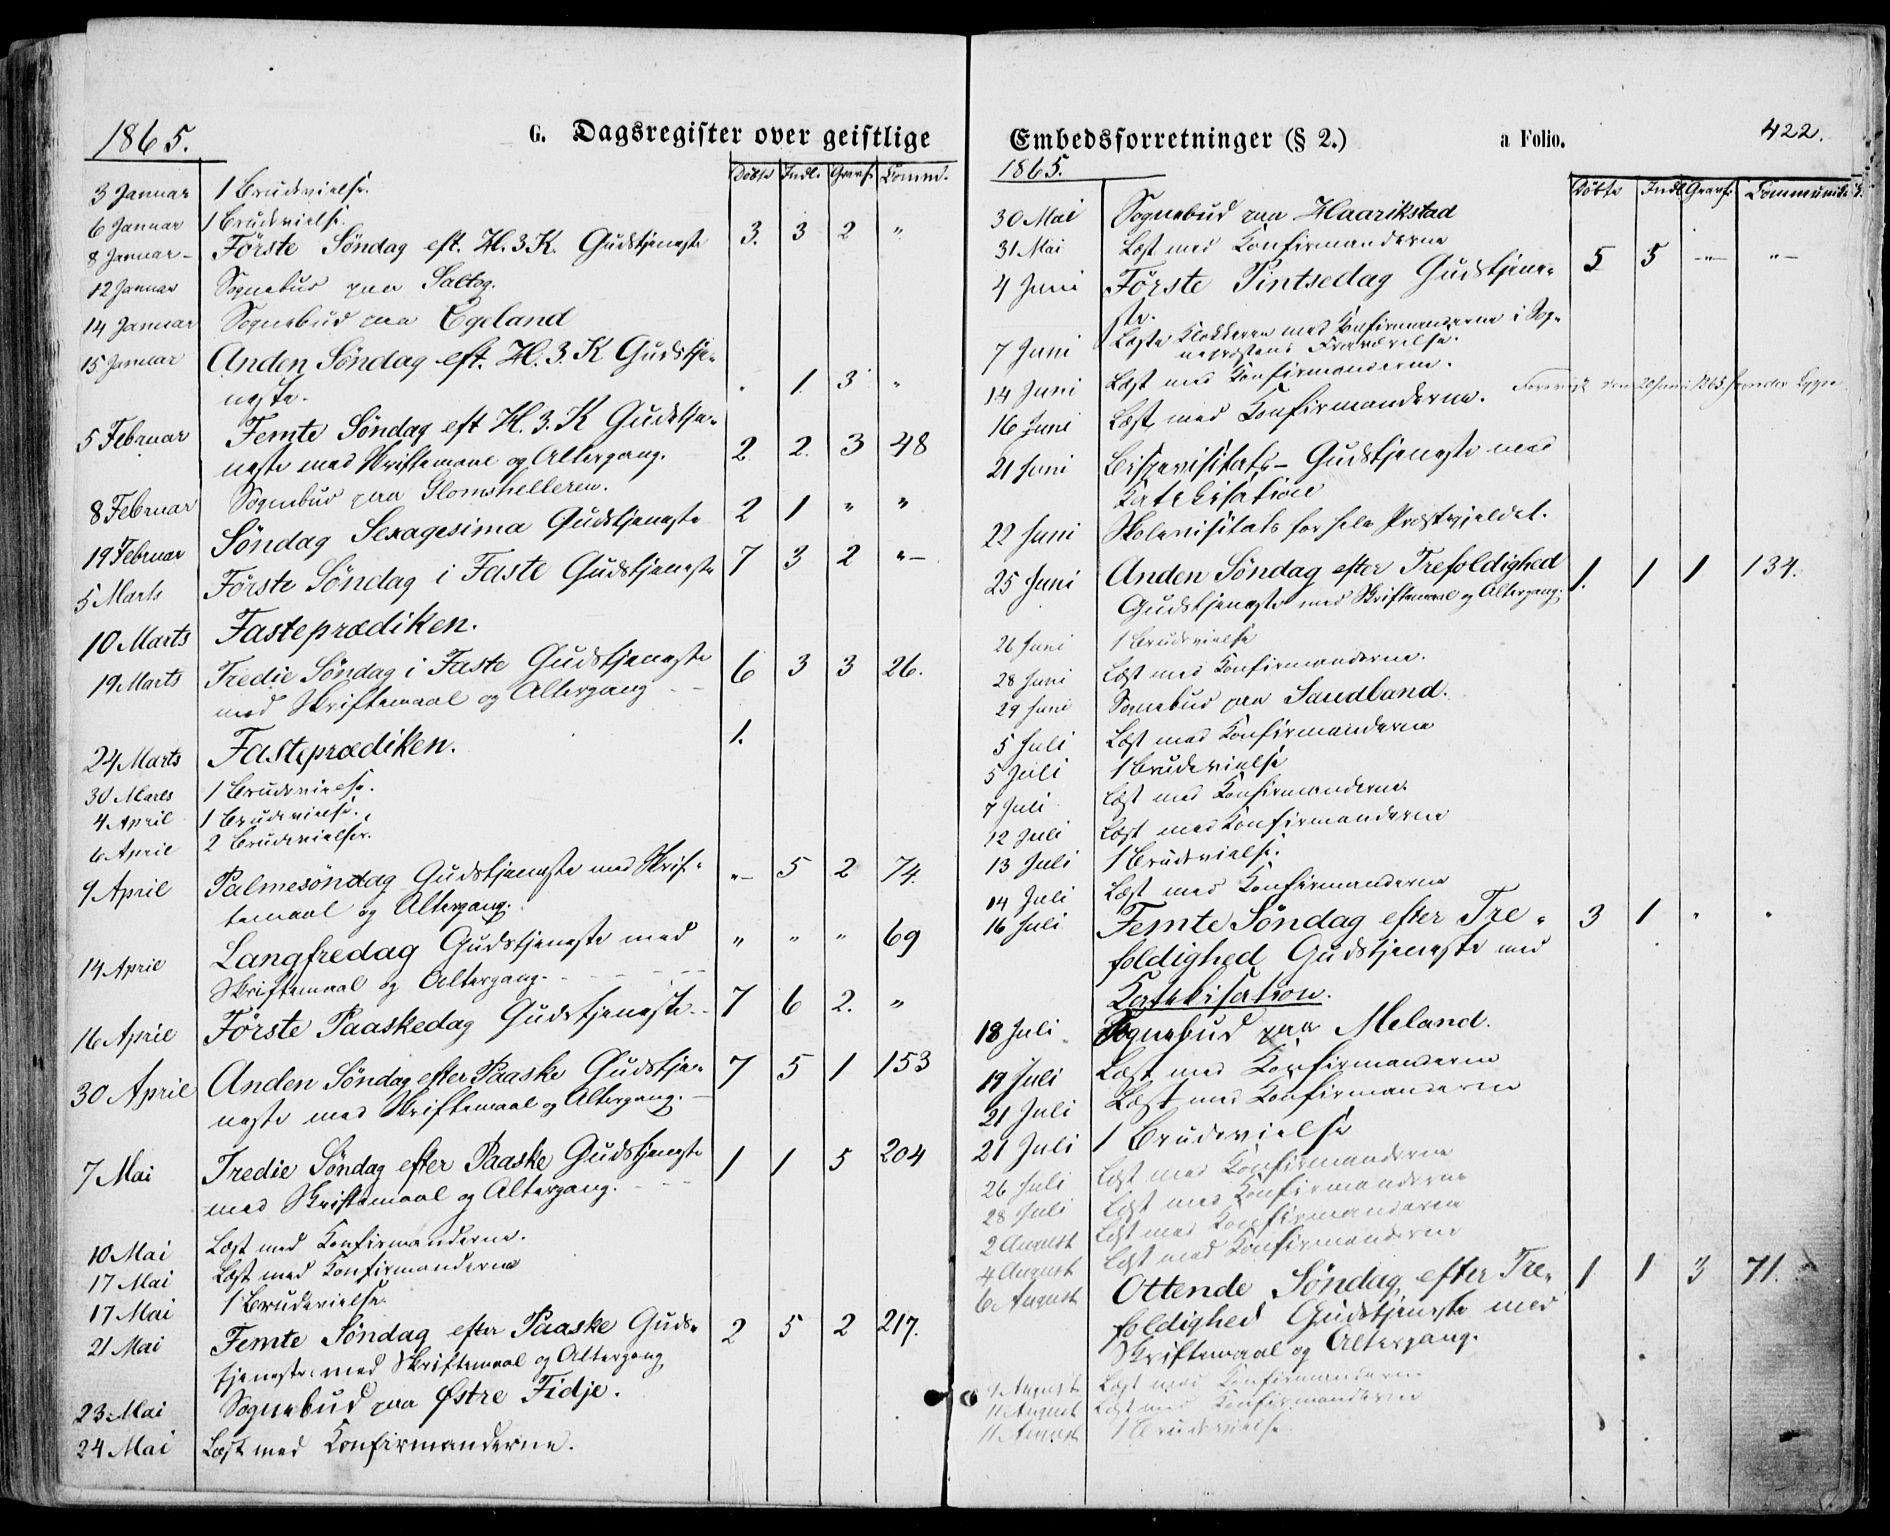 1865.
G. Dagsregister over geistlige
Døbte Indl. Gravf. Comm.
3 Januar 1 Brudevielse.
6 Januar 1 Brudevielse.
8 Januar- Første Søndag eft. H. 3. K. Gudstjeneste 3. 3 2 "
12 Januar Sognebud paa Saltog.
14 Januar Sognebud paa Egeland
15 Januar Anden Søndag eft. H. 3. K Gudstje-
neste. " 1. 3 "
5 Februar Femte Søndag eft H. 3. K Gudstje-
neste med Skriftemaal og Altergang. 2. 2. 3 48
8 Februar Sognebud paa Glomshelleren.
19 Februar Søndag Sexagesima Gudstjeneste 2 1 " "
5 Marts Første Søndag i Faste Gudstjeneste 7 3 2 "-
10 Marts Fasteprædiken.
19 Marts Tredie Søndag i Faste Gudstjeneste
med Skriftemaal og Altergang 6 3 3 26.
24 Marts Fasteprædiken. 1.
30 Marts 1 Brudevielse.
4 April 1 Brudevielse.
6 April 2 Brudevielser.
9 April Palmesøndag Gudstjeneste med Skrif-
temaal og Altergang. "- 5 2 74.
14 April Langfredag Gudstjeneste med
Skriftemaal og Altergang. " " " 69
16 April Første Paaskedag Gudstjeneste 7 6 2. "
30 April Anden Søndag efter Paaske Gudstje-
neste med Skriftemaal og Altergang. 7 5 1 153
7 Mai Tredie Søndag efter Paaske Gudstjeneste
med Skriftemaal og Altergang. 1 1 5 204
10 Mai Læst med Konfirmanderne.
17 Mai Læst med Konfirmanderne
17 Mai 1 Brudevielse.
21 Mai Femte Søndag efter Paaske Guds-
tjeneste med Skriftemaal og Altergang 2 5 2 217.
23 Mai Sognebud paa Østre Fidje.
24 Mai Læst med Konfirmanderne.
Embedsforretninger (§ 2.) a Folio. 422.
1865.
Døbte Indl Gravf.
30 Mai Sognebud paa Haarikstad
31 Mai Læst med Konfirmanderne
4 Juni Første Pintsedag Gudstjene-
ste. 5 5 -"- "-
7 Juni Læste Klokkeren med Konfirmanderne i Sog-
nepræstens Fraværelse.
14 Juni Læst med Konfirmanderne.
16 Juni Læst med Konfirmanderne. Forevist den 20 Juni 1865
21 Juni Bispevisitats- Gudstjeneste med
Katekisation
22 Juni Skolevisitats for hele Præstegjeldet.
25 Juni Anden Søndag efter Trefoldighed
Gudstjeneste med Skriftemaal og Altergang. 1. 1 1 134.
26 Juni 1 Brudevielse
28 Juni Læst med Konfirmanderne.
29 Juni Sognebud paa Sandland.
5 Juli Læst med Konfirmanderne
5 Juli 1 Brudevielse
7 Juli Læst med Konfirmanderne.
12 Juli Læst med Konfirmanderne
13 Juli 1 Brudevielse.
14 Juli Læst med Konfirmanderne
16 Juli Femte Søndag efter Tre-
foldighed Gudstjeneste med
Katekisation. 3 1 " "
18 Juli Sognebud paa Meland.
19 Juli Læst med Konfirmanderne
21 Juli Læst med Konfirmanderne
21 Juli 1 Brudevielse
26 Juli Læst med Konfirmanderne
28 Juli Læst med Konfirmanderne
2 August Læst med Konfirmanderne
4 August Læst med Konfirmanderne
6 August Ottende Søndag efter Tre-
foldighed Gudstjeneste med
Skriftemaal og Altergang. 1 1 3 71.
9 August Læst med Konfirmanderne
11 August Læst med Konfirmanderne
11 August 1 Brudevielse